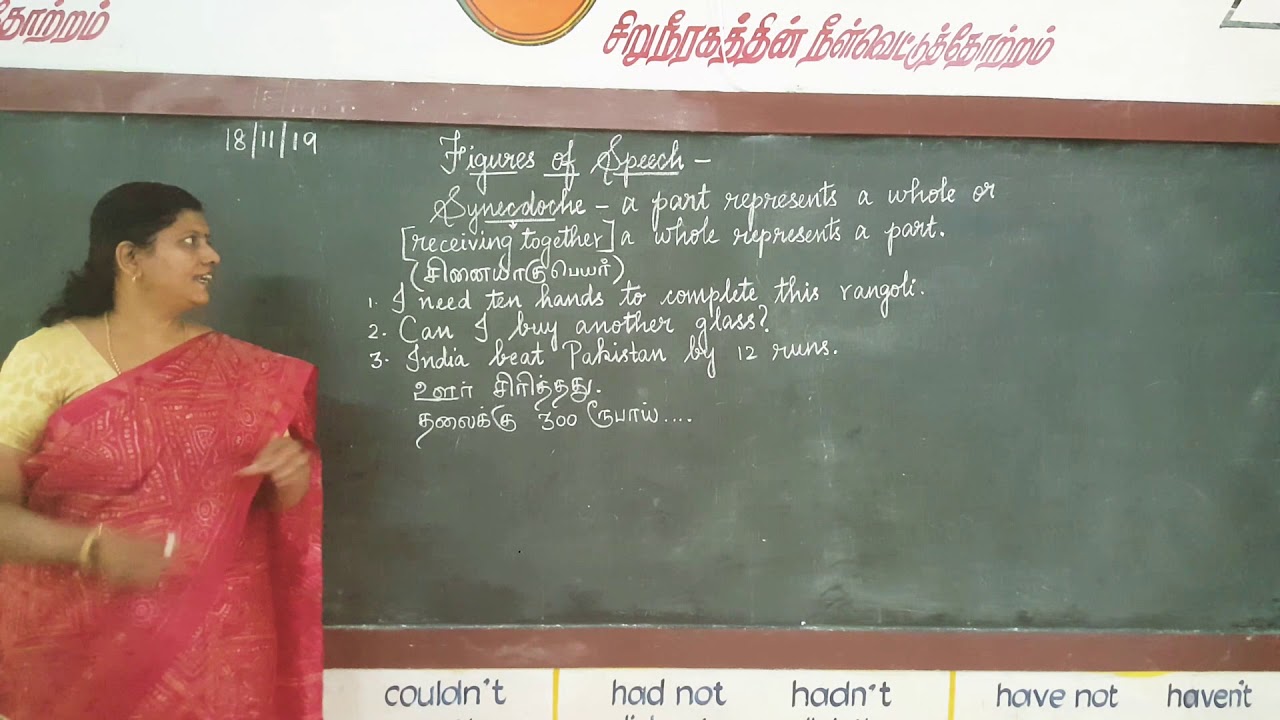 தோற்றம்
சிறுநீரகத்தின் நீள்வெட்டுத்தோற்றம்
18/11/19
Figures of Speech –
Synecdoche – a part represents a whole or
[receiving together] a whole represents a part.
(சினையாகுபெயர்)
1. I need ten hands to complete this rangoli.
2. Can I buy another glass?
3. India beat Pakistan by 12 runs.
ஊர் சிரித்தது.
தலைக்கு 300 ரூபாய்....
couldn't had not hadn't have not haven't